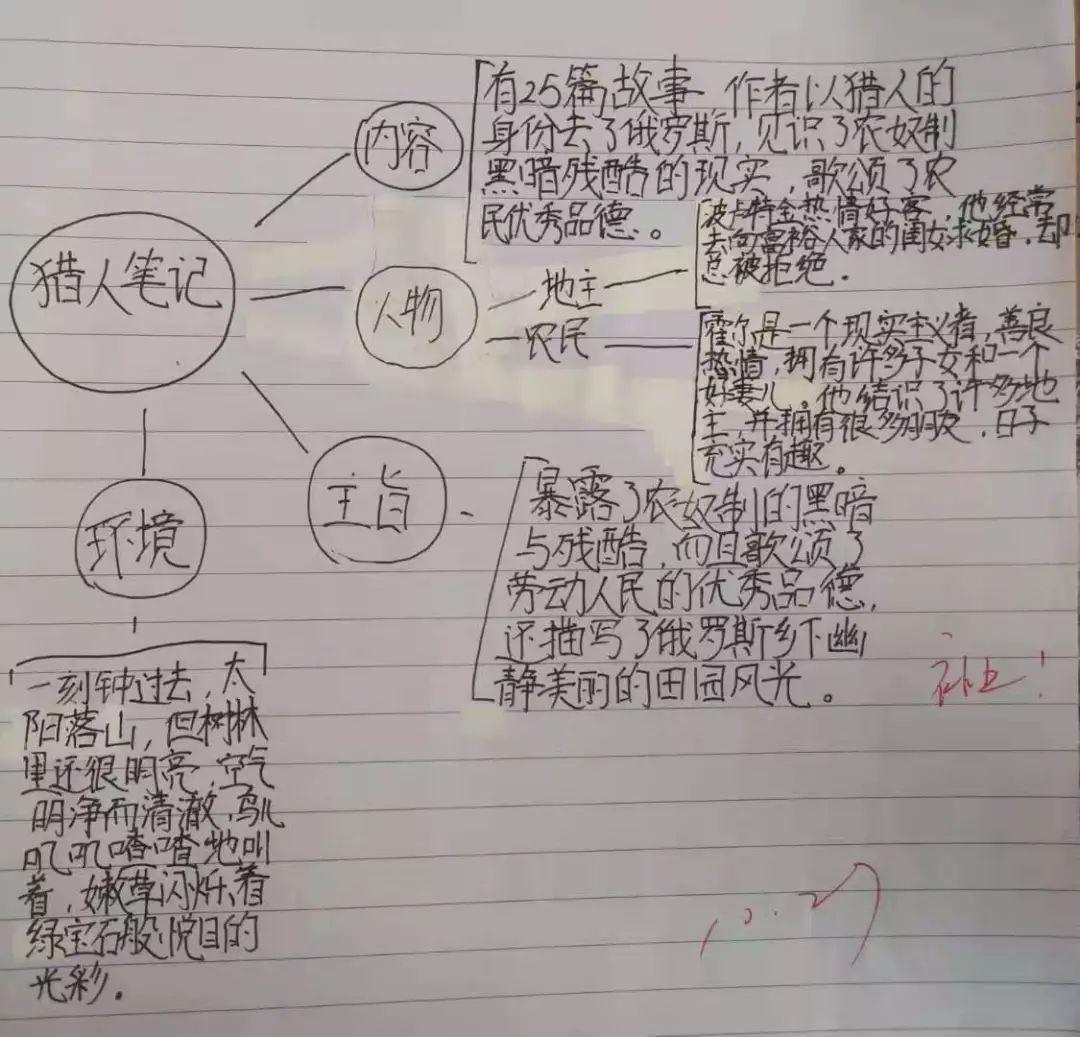 猎人笔记
内容
有25篇故事 作者以猎人的
身份去了俄罗斯,见识了农奴制
黑暗残酷的现实,歌颂了农
民优秀品德。
人物
地主
波卢特金热情好客,他经常
去向富裕人家的闺女求婚,却
总被拒绝.
农民
霍尔是一个现实主义者,善良
热情,拥有许多子女和一个
好妻儿。他结识了许多地
主,并拥有很多朋友,日子
充实有趣。
主旨
暴露了农奴制的黑暗
与残酷,而且歌颂了
劳动人民的优秀品德,
还描写了俄罗斯乡下幽
静美丽的田园风光。
环境
一刻钟过去,太
阳落山,但树林
里还很明亮,空气
明净而清澈,鸟儿
叽叽喳喳地叫
着,嫩草闪烁着
绿宝石般悦目的
光彩.
10.27